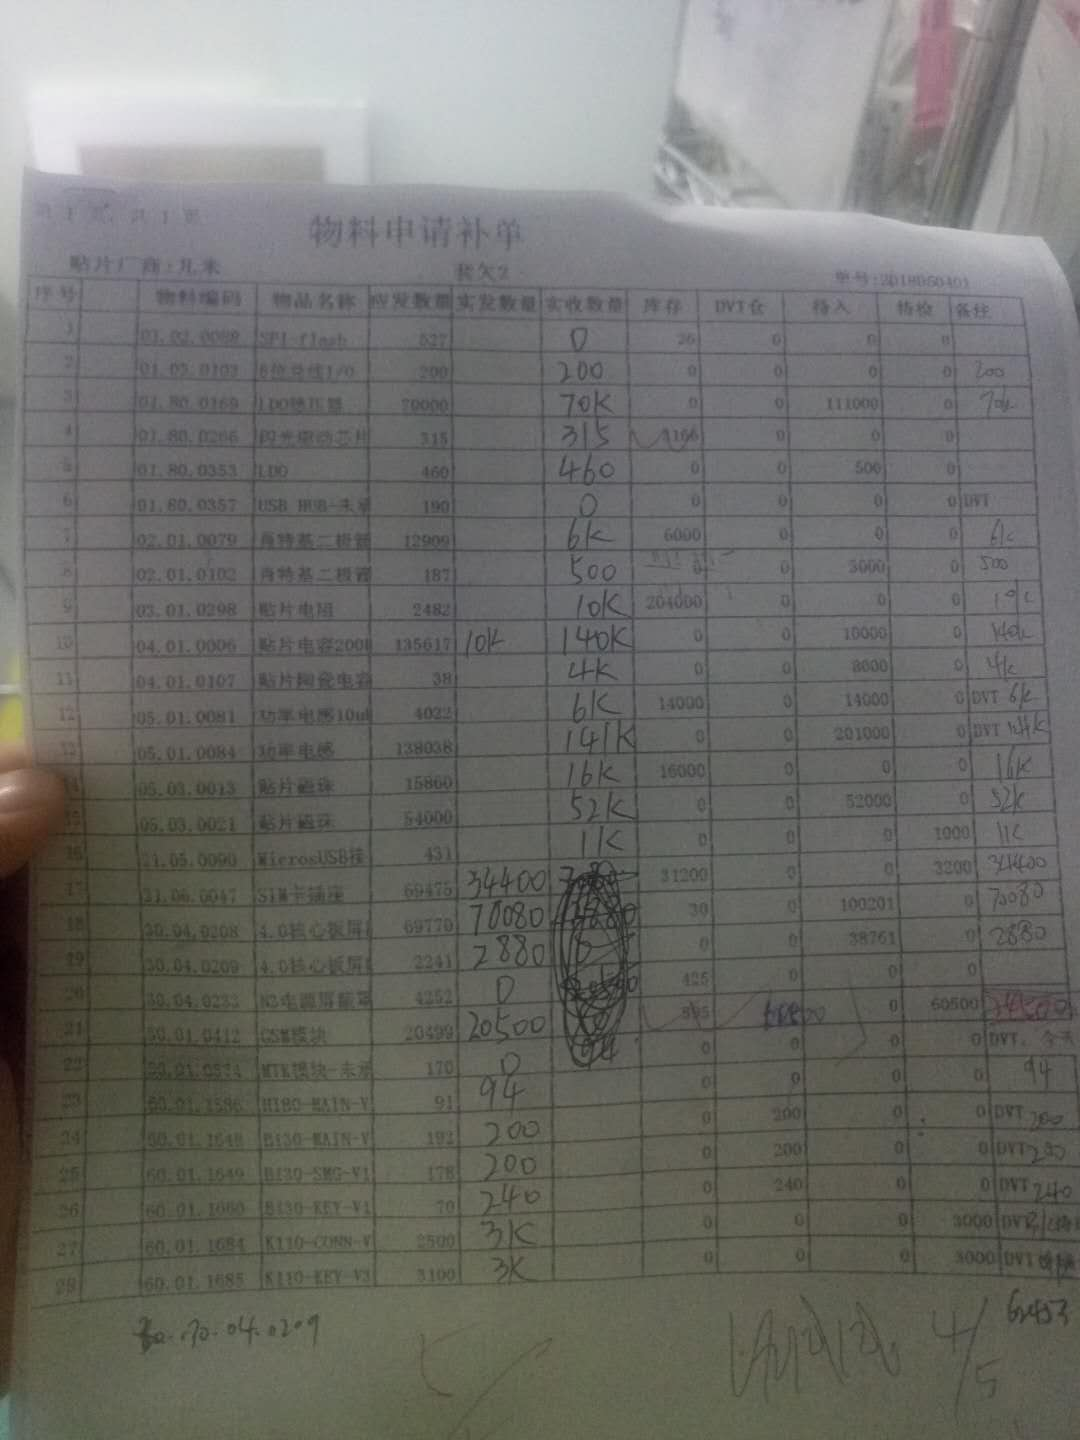 第 1 页 共 1 页
物料申请补单
贴片厂商:凡米 套欠2 单号:2018050401
序号 物料编码 物品名称 应发数量 实发数量 实收数量 库存 DVT仓 待入 待检 备注
1 SPI flash 527 0 26 0 0 0
2 8位总线I/O 200 200 0 0 0 0 200
3 01.80.0169 LDO稳压器 70000 70K 0 0 111000 0 70K
4 01.80.0266 闪光驱动芯片 315 315 1166 0 0 0
5 01.80.0353 LDO 460 460 0 0 500 0
6 01.80.0357 USB HUB-未承 190 0 0 0 0 0 DVT
7 02.01.0079 肖特基二极管 12909 6K 6000 0 0 0 6K
8 02.01.0102 肖特基二极管 187 500 0 0 3000 0 500
9 03.01.0298 贴片电阻 2482 10K 204000 0 0 0 10K
10 04.01.0006 贴片电容200 135617 10K 140K 0 0 10000 0 140K
11 04.01.0107 贴片陶瓷电容 38 4K 0 0 8000 0 4K
12 05.01.0081 功率电感10uH 4022 6K 14000 0 14000 0 DVT 6K
13 05.01.0084 功率电感 138038 141K 0 0 201000 0 DVT 141K
14 05.03.0013 贴片磁珠 15860 16K 16000 0 0 0 16K
15 05.03.0021 贴片磁珠 54000 52K 0 0 52000 0 52K
16 21.05.0090 MicrosUSB接 431 1K 0 0 0 1000 1K
17 21.06.0047 SIM卡插座 69475 34400 31200 0 0 3200 34400
18 30.04.0208 4.0核心板屏 69770 70080 30 0 100201 0 70080
19 30.04.0209 4.0核心板屏 2241 2880 0 0 38761 0 2880
20 30.04.0233 N3电源屏蔽罩 4252 0 425 0 0 0
21 50.01.0412 GSM模块 20499 20500 595 0 60500
22 MTK模块-未承 170 0 0 0 0 0 DVT, 今天
23 60.01.1586 H180-MAIN-V 91 94 0 0 0 0 94
24 60.01.1648 B130-MAIN-V 192 200 0 200 0 0 DVT 200
25 60.01.1649 B130-SMG-V1 178 200 0 200 0 0 DVT 200
26 60.01.1660 B130-KEY-V1 70 240 0 240 0 0 DVT 240
27 60.01.1684 K110-CONN-V 2500 3K 0 0 0 3000 DVT
28 60.01.1685 K110-KEY-V3 3100 3K 0 0 0 3000 DVT
30.04.0209 4/5 62453